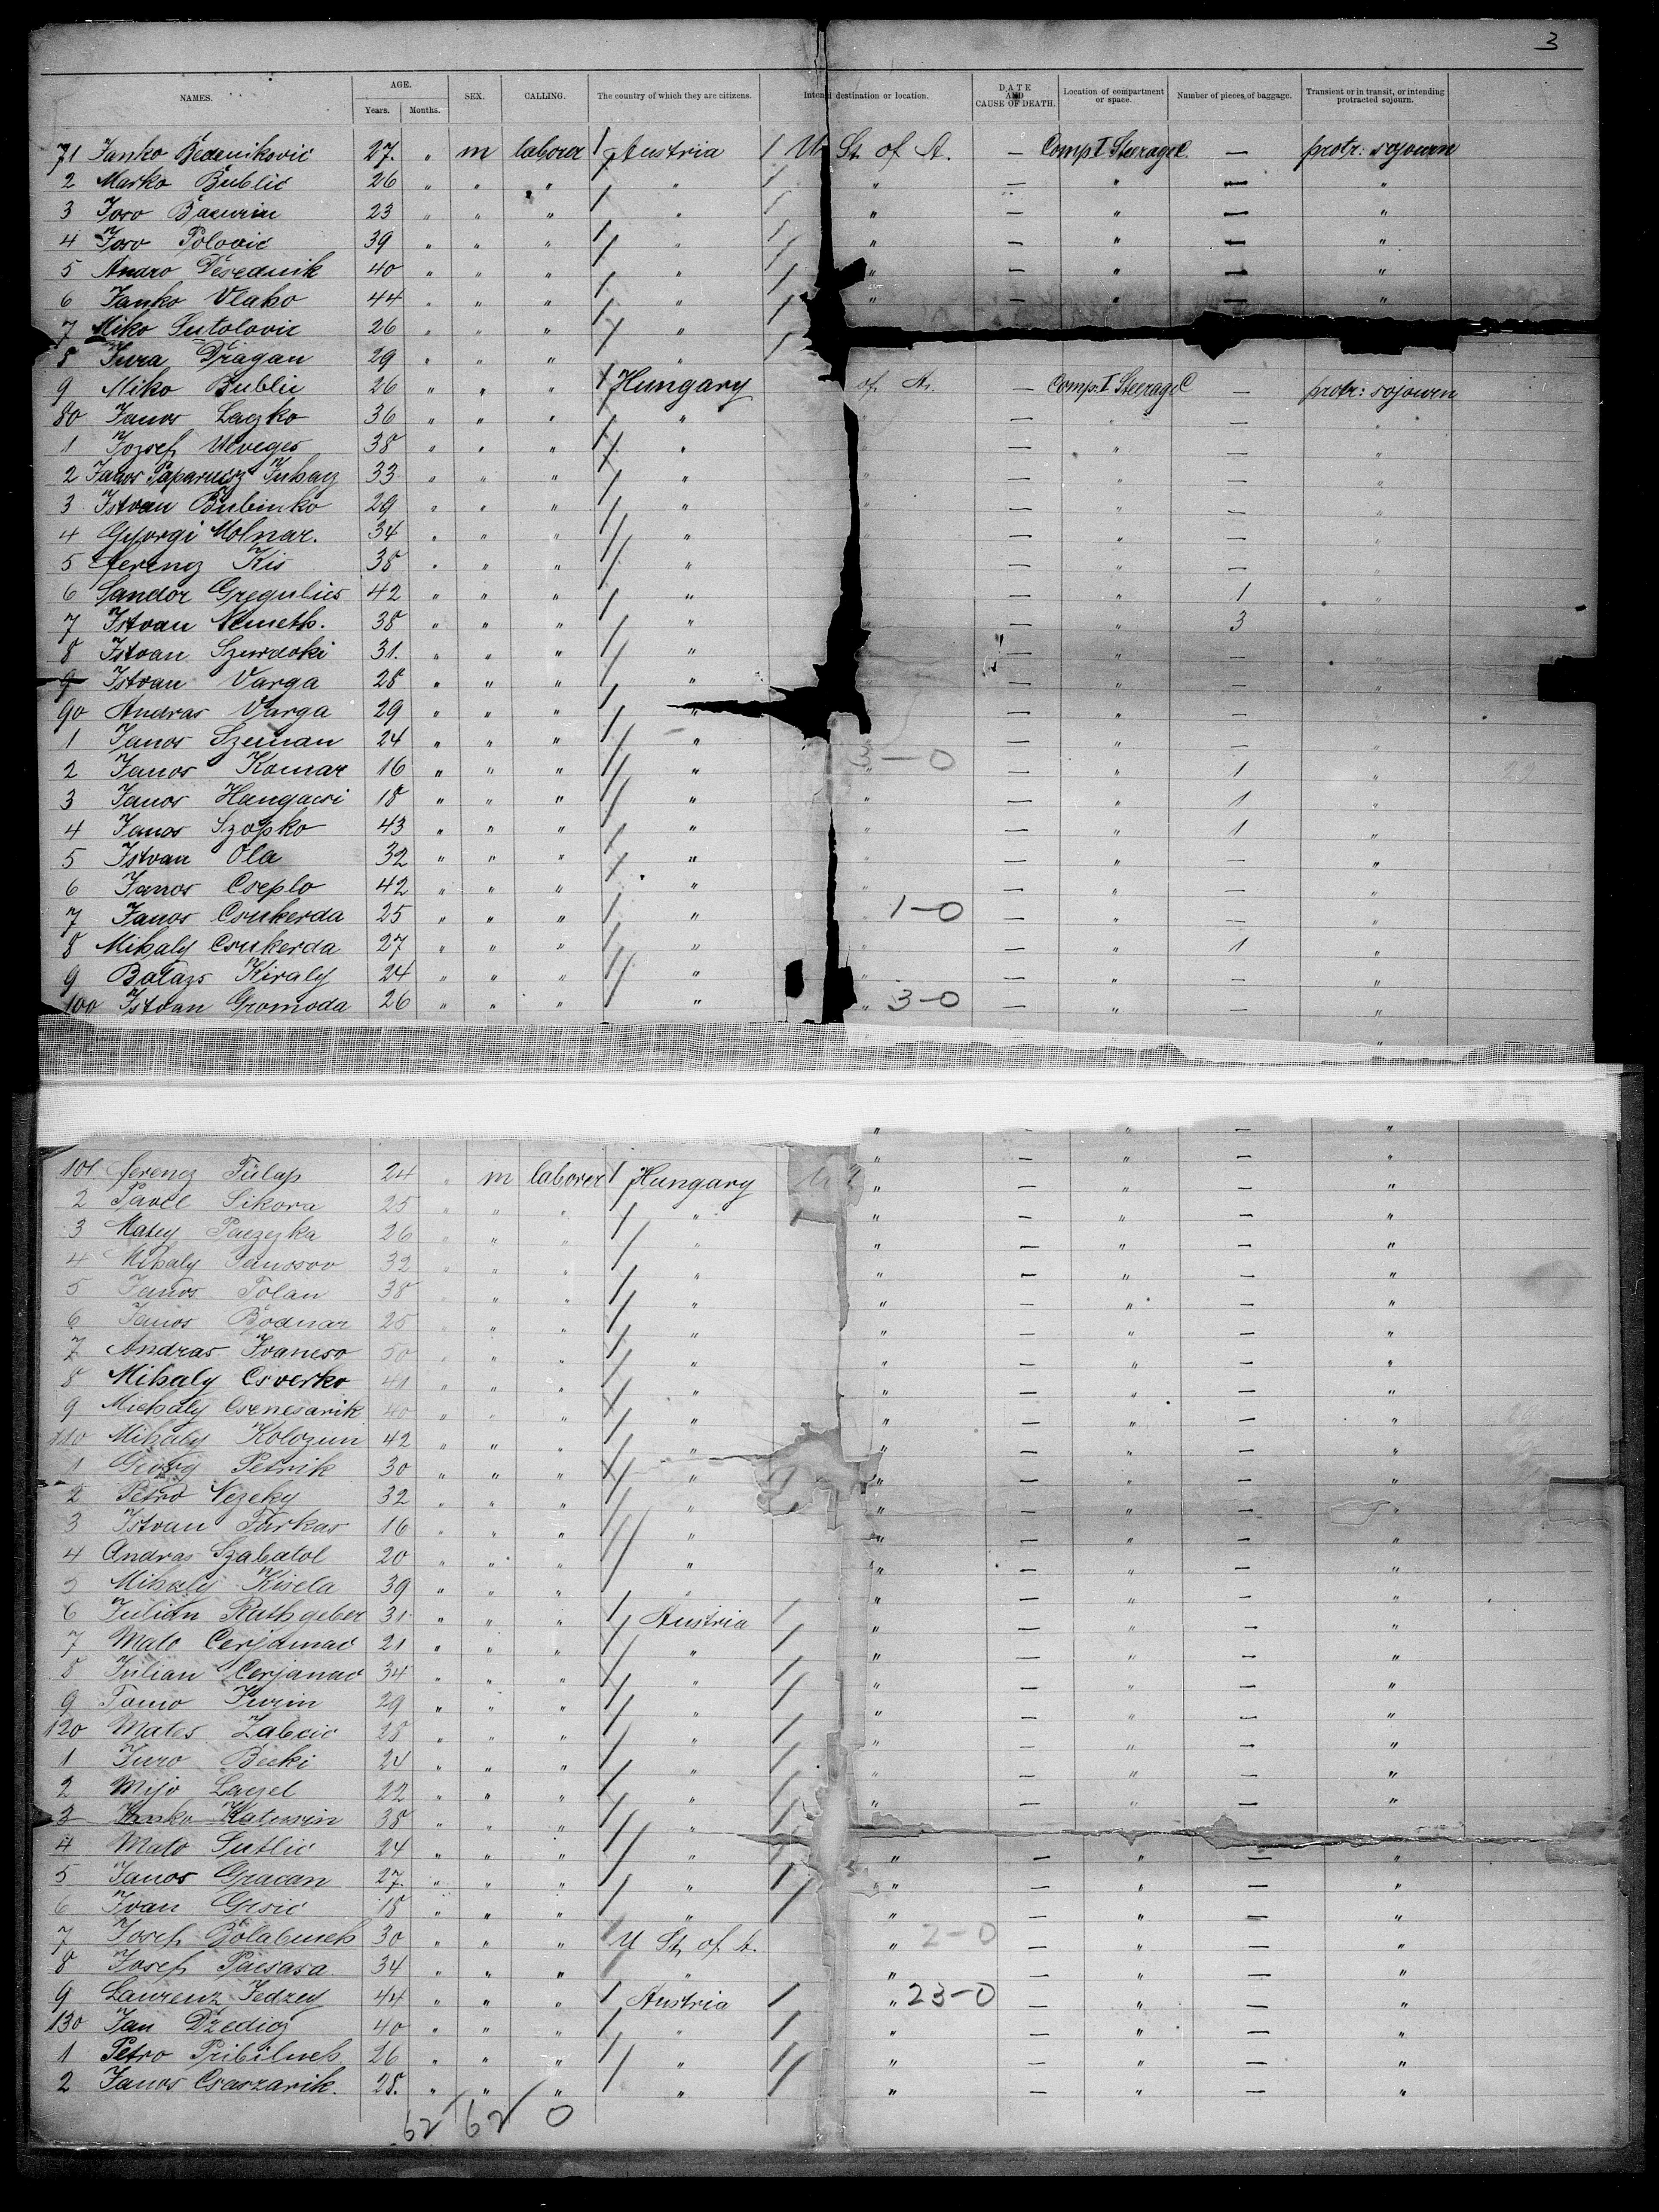 3
NAMES. AGE. Years. Months. SEX. CALLING. The country of which they are citizens. destination or location. DATE AND CAUSE OF DEATH. Location of compartment or space. Number of pieces of baggage. Transient or in transit, or intending protracted sojourn.
71 Janko Bedenikovic 27. " m laborer Austria U. St. of A. — Comp. I Steerage C. — protr: sojourn
2 Marko Bublic 26 " " " " " — " — "
3 Joso 23 " " " " " — " — "
4 Joso Polovic 39 " " " " " — " — "
5 40 " " " " " — " — "
6 Janko Vlaho 44 " " " " " — " — "
7 Miko Sutolovic 26 " " " "
8 Jura Dragan 29 " " " "
9 Miko Bublic 26 " " " Hungary of A. — Comp. I Steerage C — protr: sojourn
80 Janos Laczko 36 " " " " — " — "
1 Jozsef Uveges 38 " " " " — " — "
2 Janos Juhasz 33 " " " " — " — "
3 Istvan Bubinko 29 " " " " — " — "
4 Gyorgi Molnar. 34 " " " " — " — "
5 Ferencz Kis 38 " " " " — " — "
6 Sandor Gregulics 42 " " " " — " 1 "
7 Istvan Nemeth. 38 " " " " — " 3 "
8 Istvan 31. " " " " — " — "
9 Istvan Varga 28 " " " " — " — "
90 Andras Varga 29 " " " " — " — "
1 Janos Szeman 24 " " " " — " — "
2 Janos Komar 16 " " " " 3-0 — " 1 "
3 Janos Hangacsi 18 " " " " " — " 1 "
4 Janos Szopko 43 " " " " " — " 1 "
5 Istvan Ola 32 " " " " — " — "
6 Janos Cseplo 42 " " " " " — " — "
7 Janos Csukerda 25 " " " " 1-0 — " — "
8 Mihaly Csukerda 27 " " " " " — " 1 "
9 Balazs Kiraly 24 " " " " — " — "
100 Istvan Gromoda 26 " " " " " 3-0 — " — "
101 Ferencz Fülap 24 " m laborer Hungary " — " — "
2 Pavel Sikora 25 " " " " " — " — "
3 Matey 26 " " " " " — " — "
4 Mihaly Janosov 32 " " " " " — " — "
5 Janos Tolan 38 " " " " " — " — "
6 Janos Bodnar 25 " " " " " — " — "
7 Andras Ivancso 30 " " " " " — " — "
8 Mihaly Csverko 41 " " " " " — " — "
9 Michaly Csenesarik 40 " " " " " — " — "
110 Mihaly Kolozun 42 " " " " " — " — "
1 Petrik 30 " " " " " — " — "
2 Petro Vezeky 32 " " " " " — " — "
3 Istvan Farkas 16 " " " " " — " — "
4 Andras Szabatol 20 " " " " " — " — "
5 Mihaly Kisela 39 " " " " " — " — "
6 Julian Rathgeber 31. " " " Austria " — " — "
7 Mato Cerjanac 21 " " " " " — " — "
8 Julian Cerjanac 34 " " " " " — " — "
9 Tomo Jurin 29 " " " " " — " — "
120 Males Zabcic 28 " " " " " — " — "
1 Juro Becki 24 " " " " " — " — "
2 Mijo 22 " " " " " — " — "
3 38 " " " "
4 Mato Sutlic 24 " " " " " — " — "
5 Janos Gracan 27. " " " " " — " — "
6 Ivan Grsic 18 " " " " " — " — "
7 Josef 30 " " " U St. of A. " 2-0 — " — "
8 Josef 34 " " " " " — " — "
9 Laurenz Jedzey 44 " " " Austria " 23-0 — " — "
130 Jan 40 " " " " " — " — "
1 Petro 26 " " " " " — " — "
2 Janos Csaszarik. 28. " " " " " — " — "
62 62 0